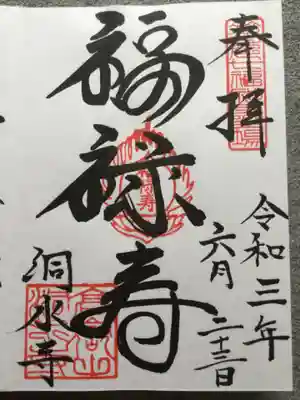 奉拝
令和三年
六月二十三日
福禄寿
洞水寺